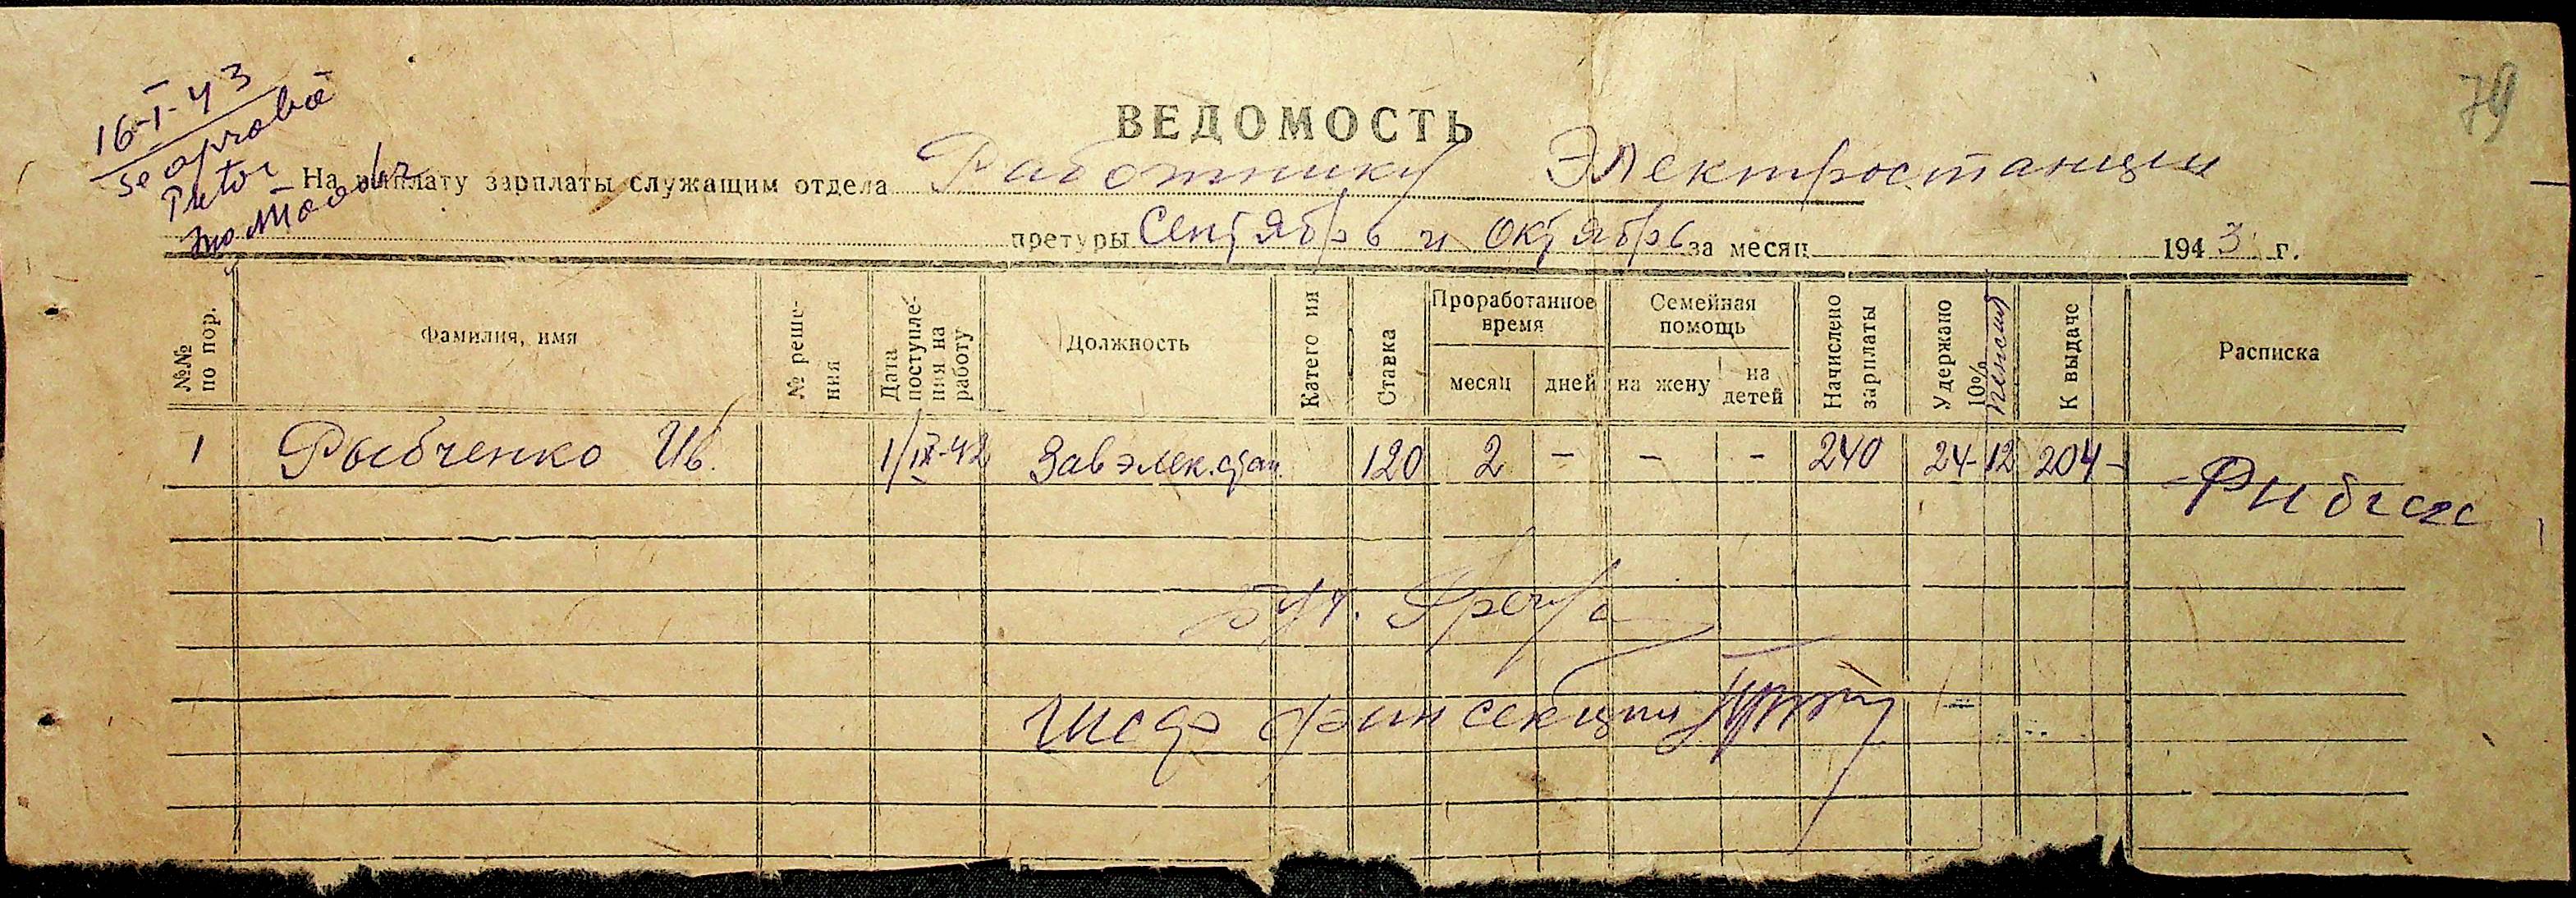 79
16-I-43
se aprobă
Pretor
ВЕДОМОСТЬ
На выплату зарплаты служащим отдела Работнику Электростанции
претуры Сентябрь и октябрь за месяц 1943 г.
№№ по пор.
Фамилия, имя
№ реше-ния
Дата поступле-ния на работу
Должность
Катего ия
Ставка
Проработанное время
месяц
дней
Семейная помощь
на жену
на детей
Начислено зарплаты
Удержано 10%
пенсия
К выдаче
Расписка
1 Рыбченко Ив. 1/IX-42 Зав элек.стан. 120 2 - - - 240 24- 12 204-
Бух.
Шеф финсекции